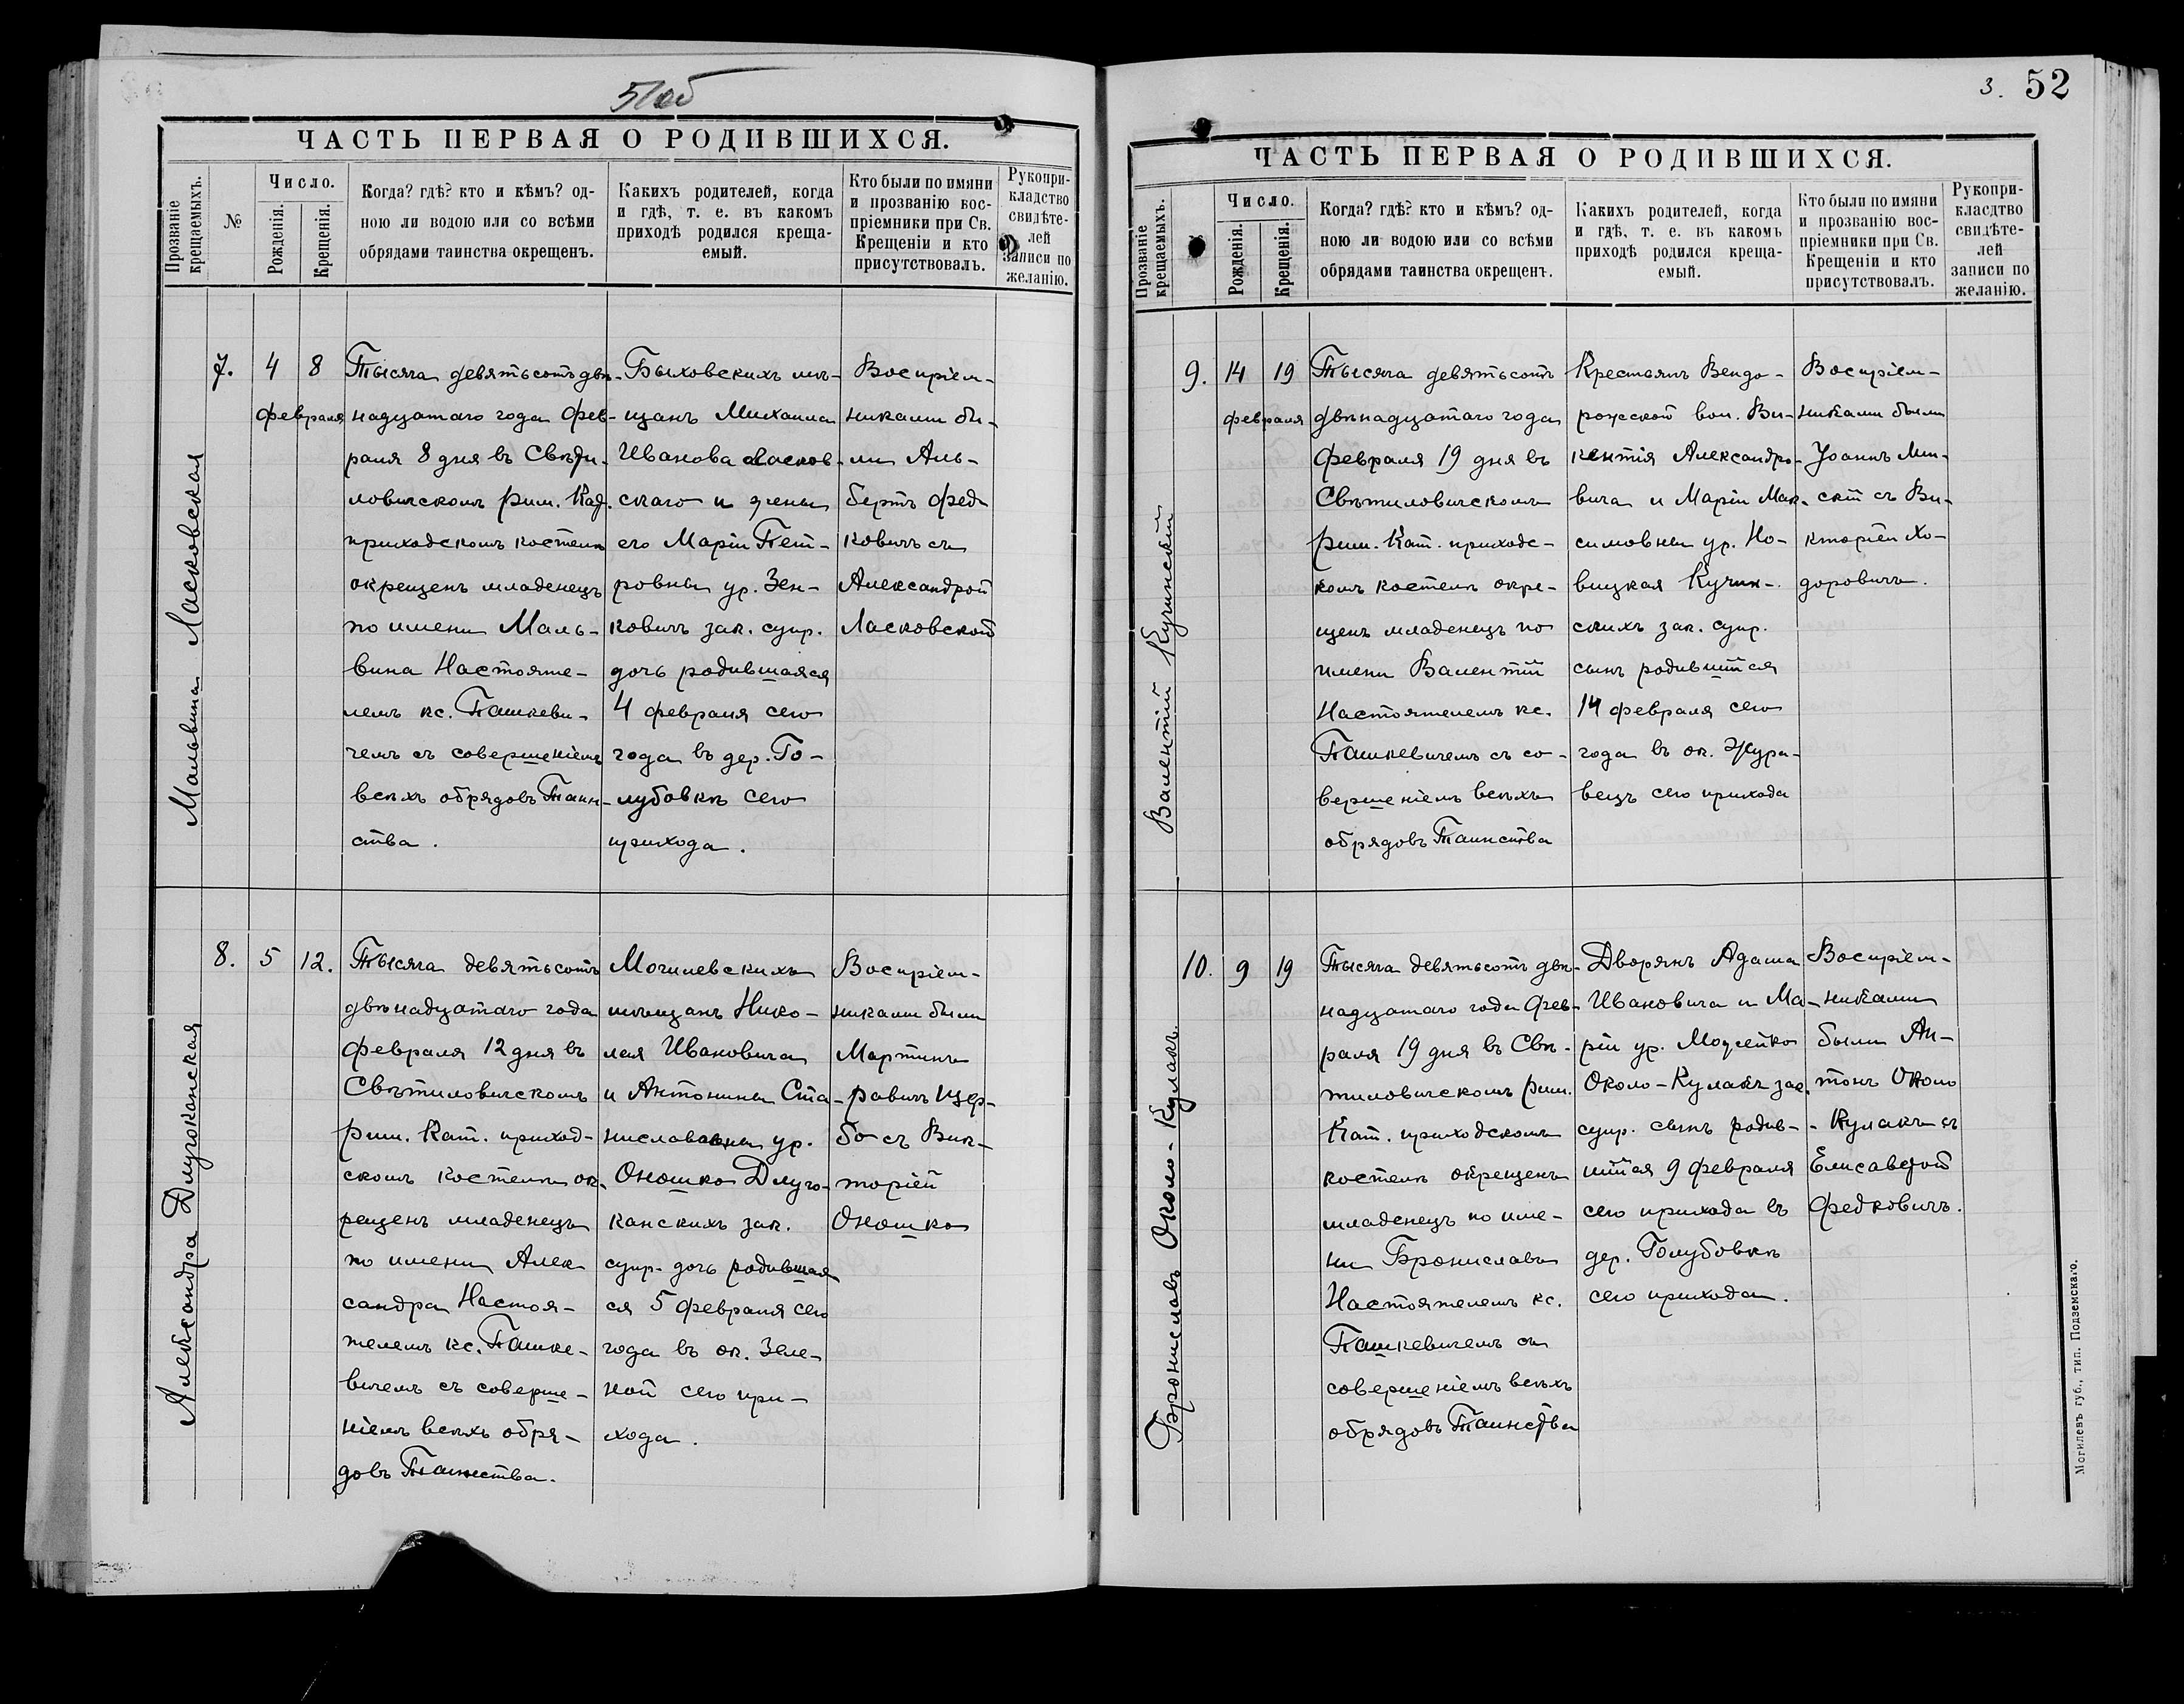 51об
ЧАСТЬ ПЕРВАЯ О РОДИВШИХСЯ.
Прозваніе крещаемыхъ.
№
Число.
Рожденія.
Крещенія.
Когда? гдѣ? кто и кѣмъ? од-
ною ли водою или со всѣми
обрядами таинства окрещенъ.
Какихъ родителей, когда
и гдѣ, т. е. въ какомъ
приходѣ родился креща-
емый.
Кто были по имяни
и прозванію вос-
пріемники при Св.
Крещеніи и кто
присутствовалъ.
Рукопри-
кладство
свидѣте-
лей
записи по
желанію.
Мальвина Ласковская
7.
4
8
февраля
Тысяча девятьсотъ двѣ-
надцатаго года фев-
раля 8 дня въ Свѣти-
ловичскомъ рим. Каѳ.
приходскомъ костелѣ
окрещенъ младенецъ
по имени Маль-
вина Настояте-
лемъ кс. Пашкеви-
чемъ съ совершеніемъ
всѣхъ обрядовъ Таин-
ства.
Быховскихъ мѣ-
щанъ Михаила
Иванова Ласков-
скаго и жены
его Маріи Пет-
ровны ур. Зен-
ковичъ зак. супр.
дочь родившаяся
4 февраля сего
года въ дер. Го-
лубовкѣ сего
прихода.
Воспріем-
никами бы-
ли Аль-
бертъ Фед-
ковичъ съ
Александрой
Ласковской
Александра Длугоканская
8.
5
12.
Тысяча девятьсотъ
двѣнадцатаго года
февраля 12 дня въ
Свѣтиловичскомъ
рим. Кат. приход-
скомъ костелѣ ок-
рещенъ младенецъ
по имени Алек
сандра Настоя-
телемъ кс. Пашке-
вичемъ съ соверше-
ніемъ всѣхъ обря-
довъ Таинства.
Могилевскихъ
мѣщанъ Нико-
лая Ивановича
и Антонины Ста-
ниславовны ур.
Оношко Длуго-
канскихъ зак.
супр. дочь родившая
ся 5 февраля сего
года въ ок. Зеле-
ной сего при-
хода.
Воспріем-
никами были
Мартинъ
равичъ Щер-
бо съ Вик-
торіей
Оношко
3. 52
ЧАСТЬ ПЕРВАЯ О РОДИВШИХСЯ.
Прозваніе крещаемыхъ.
Число.
Рожденія.
Крещенія.
Когда? гдѣ? кто и кѣмъ? од-
ною ли водою или со всѣми
обрядами таинства окрещенъ.
Какихъ родителей, когда
и гдѣ, т. е. въ какомъ
приходѣ родился креща-
емый.
Кто были по имяни
и прозванію вос-
пріемники при Св.
Крещеніи и кто
присутствовалъ.
Рукопри-
класдтво
свидѣте-
лей
записи по
желанію.
Валентій Кучинскій
9.
14
19
февраля
Тысяча девятьсотъ
двѣнадцатаго года
Февраля 19 дня въ
Свѣтиловичскомъ
рим. Кат. приходс-
комъ костелѣ окре-
щенъ младенецъ по
имени Валентій
Настоятелемъ кс.
Пашкевичемъ съ со-
вершеніемъ всѣхъ
обрядовъ Таинства
Крестьянъ Вендо-
рожской вол. Ви-
кентія Александро-
вича и Маріи Мак-
симовны ур. Но-
вицкая Кучин-
скихъ зак. супр.
сынъ родившійся
14 февраля сего
года въ ок. Жура-
вецъ сего прихода
Воспріем-
никами были
Іоаннъ Мин-
скій съ Ви-
кторіей Хо-
доровичъ.
Брониславъ Около-Кулакъ.
10.
9
19
Тысяча девятьсотъ двѣ-
надцатаго года Фев-
раля 19 дня въ Свѣ-
тиловичскомъ рим.
Кат. приходскомъ
костелѣ окрещенъ
младенецъ по име-
ни Брониславъ
Настоятелемъ кс.
Пашкевичемъ съ
совершеніемъ всѣхъ
обрядовъ Таинства
Дворянъ Адама
Ивановича и Ма-
ріи ур. Можейко
Около-Кулакъ зак.
супр. сынъ родив-
шійся 9 февраля
сего прихода въ
дер. Голубовкѣ
сего прихода.
Воспріем-
никами
были Ан-
тонъ Около
-Кулакъ съ
Елисаветой
Федковичъ.
Могилевъ губ., тип. Подземскаго.